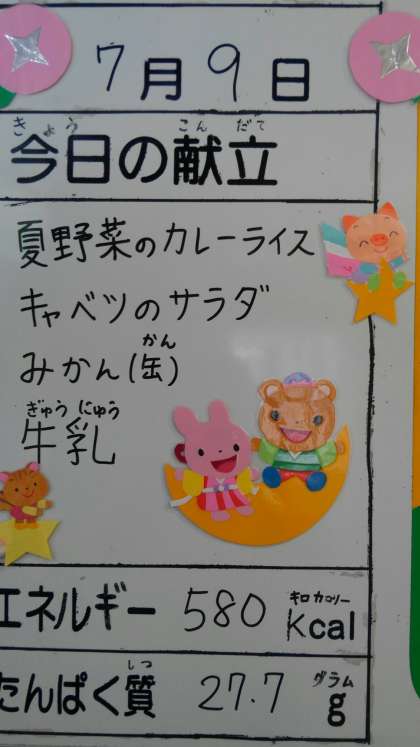 7月9日
きょう こんだて
今日の献立
夏野菜のカレーライス
キャベツのサラダ
かん
みかん(缶)
ぎゅうにゅう
牛乳
キロカロリー
エネルギー 580 kcal
しつ グラム
たんぱく質 27.7 g